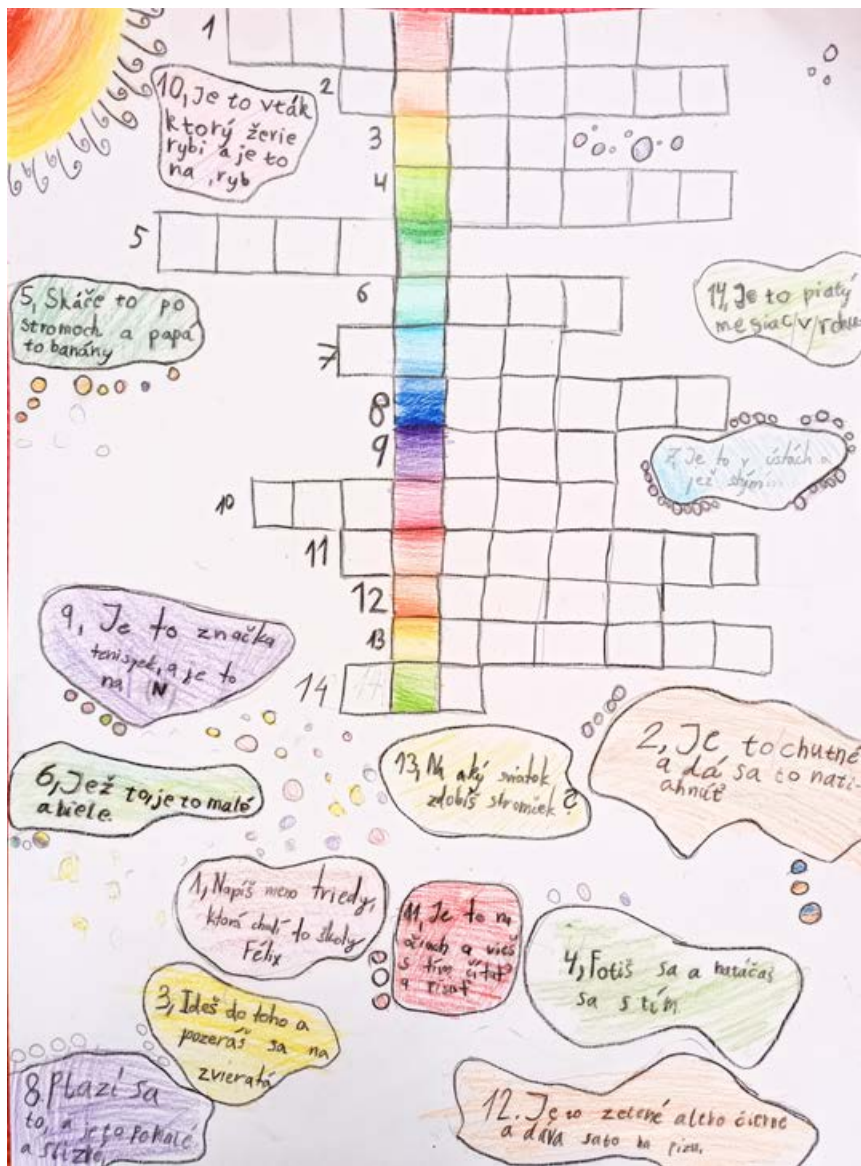 1
2
10, Je to vták
ktorý žerie
rybi a je to
na ,ryb
3
4
5
6
5, Skáče to po
stromoch a papá
to banány
14, Je to piatý
mesiac v rohu
7
8
9
7, Je to v ústach a
10
11
12
9, Je to značka
tenisiek, a je to
na N
13
14
6, Jež to, je to malé
a biele.
13, Na aký sviatok
zdobíš stromček ?
2, Je to chutné
a dá sa to nati-
ahnúť
1, Napíš meno triedy,
ktorá chodí to školy
Félix
11, Je to na
očiach a vieš
s tím čítať
a písať
4, Fotíš sa a natáčaš
sa s tím
3, Ideš do toho a
pozeráš sa na
zvieratá
8 Plazí sa
to, a je to pomalé
a slizké
12. Je to zelené alebo čierne
a dáva sa to na pizu.